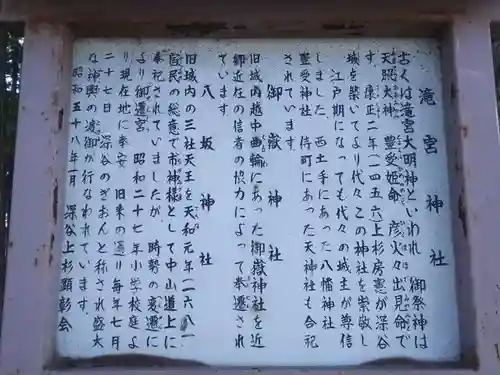 瀧宮神社
古くは滝宮大明神といわれ 御祭神は
天照大神 豊受姫命 彦火々出見命で
す。康正二年(一四五六)上杉房憲が深谷
城を築いてより代々この神社を崇敬し
江戸期になっても代々の城主が尊信
しました 西土手にあった八幡神社
豊受神社 侍町にあった天神社も合祀
されています。
御嶽神社
旧城内越中曲輪にあった御嶽神社を近
郷近在の信者の協力によって奉遷され
ています。
八坂神社
旧城内の三社天王を天和元年(一六八一)
庶民の総意で市神様として中山道上に
奉祀されていましたが、時勢の変遷に
より御遷宮 昭和二十七年小学校庭よ
り現在地に奉安 旧来の通り毎年七月
二十七日 深谷のぎおんと称され盛大
な神輿の渡御が行なわれています。
昭和五十八年一月 深谷上杉顕彰会